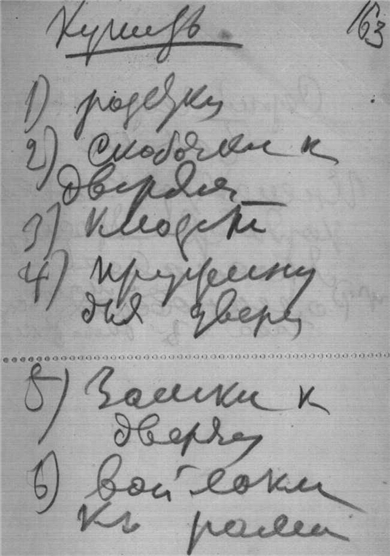 Купить 163
1) розетки
2) скобочки к
дверям
3)
4) пружину
для двери
5) Замки к
дверям
6) войлоки
къ рамам